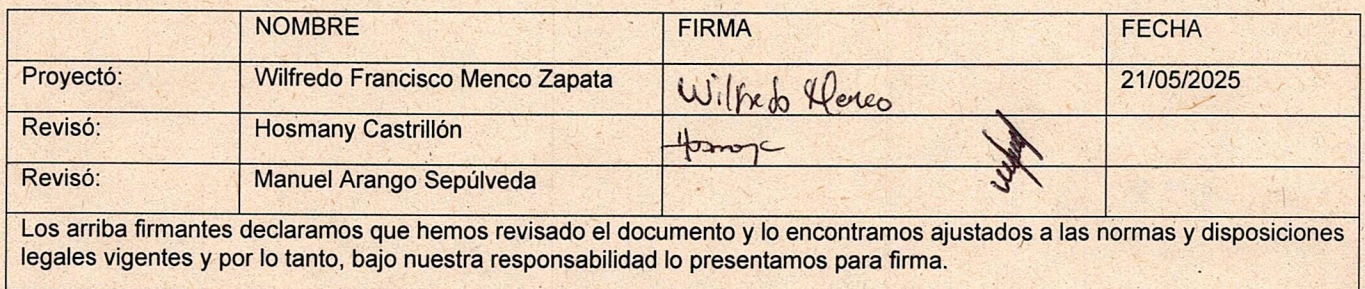 NOMBRE FIRMA FECHA
Proyectó: Wilfredo Francisco Menco Zapata Wilfredo Menco 21/05/2025
Revisó: Hosmany Castrillón
Revisó: Manuel Arango Sepúlveda
Los arriba firmantes declaramos que hemos revisado el documento y lo encontramos ajustados a las normas y disposiciones
legales vigentes y por lo tanto, bajo nuestra responsabilidad lo presentamos para firma.